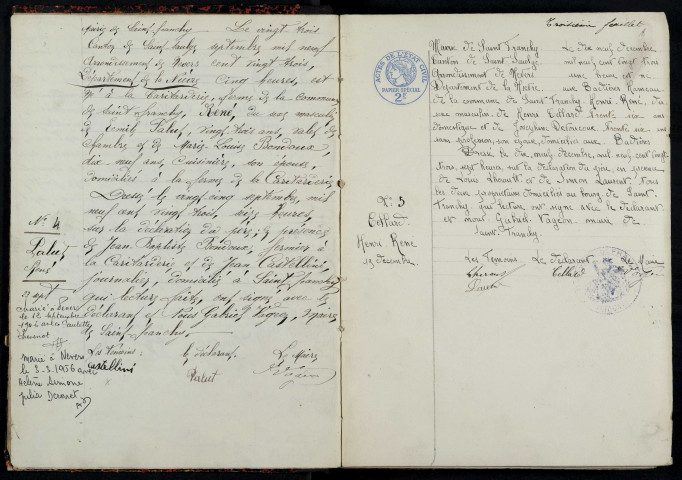 Mairie de Saint Franchy
Le vingt trois
Canton de Saint Saulge
septembre mil neuf
Arrondissement de Nevers
cent vingt trois,
Département de la Nièvre
cinq heures, est
né à la Caritarderie, ferme de la commune
de Saint Franchy, René, du sexe masculin
de Emile Valut, vingt trois ans, valet de
chambre et de Marie Louise Bondoux,
dix neuf ans cuisinière, son épouse,
domiciliés à la ferme de la Caritarderie
Dressé le vingt cinq septembre, mil
neuf cent vingt trois, heures,
sur la déclaration du père; en présence
de Jean Baptiste Bondoux, fermier à
la Caritarderie et de Jean Castellini,
journalier, domiciliés à Saint Franchy
qui lecture faite, ont signé avec le
déclarant et Nous Gabriel Vageon, Maire
de Saint Franchy
Les témoins: le déclarant Le Maire
Castellini Valut Vageon
N° 4
Valut
René
23 sept
marié à Nevers
le 12 septembre
marié à Nevers
le 3-3-1956 avec
Hélène Simone
Julia
Troisième feuillet
ACTES DE L'ÉTAT CIVIL
PAPIER SPÉCIAL
2F
Mairie de Saint Franchy
Le dix neuf décembre
Canton de Saint Saulge
mil neuf cent vingt trois
Arrondissement de Nevers
une heure est né
Département de la Nièvre
aux Badières Hameau
de la commune de Saint-Franchy Henri René, du
sexe masculin de Henri Collard trente six ans
domestique et de Joséphine trente six ans
sans profession, son épouse, domiciliés aux Badières
Dressé le dix neuf décembre, mil neuf cent vingt
trois, sept heures, sur la déclaration du père en présence
de Louis et de Simon Laurent, tous
les deux propriétaires domiciliés au bourg de Saint
Franchy, qui lecture ont signé avec le déclarant
et nous Gabriel Vageon, maire de
Saint Franchy.
Les Témoins Le Déclarant Le Maire
Collard
N° 5
Collard
Henri René
19 décembre